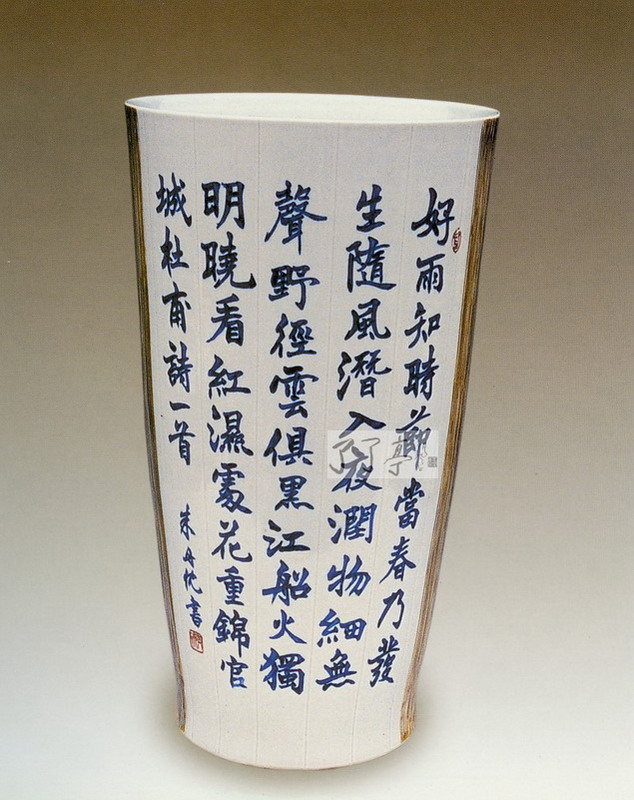 好雨知時節當春乃發
生隨風潛入夜潤物細無
聲野徑雲俱黑江船火獨
明曉看紅濕處花重錦官
城杜甫詩一首
朱丹忱書